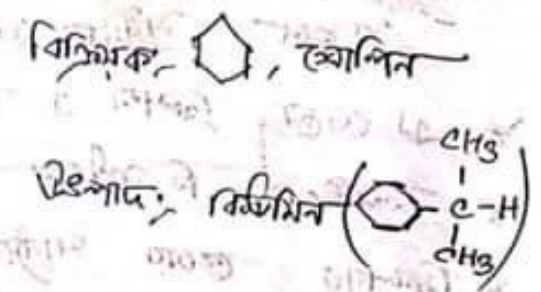 বিক্রিয়ক, , প্রোপিন
উৎপাদ:, কিউমিন ( - C - H )
CH3
CH3